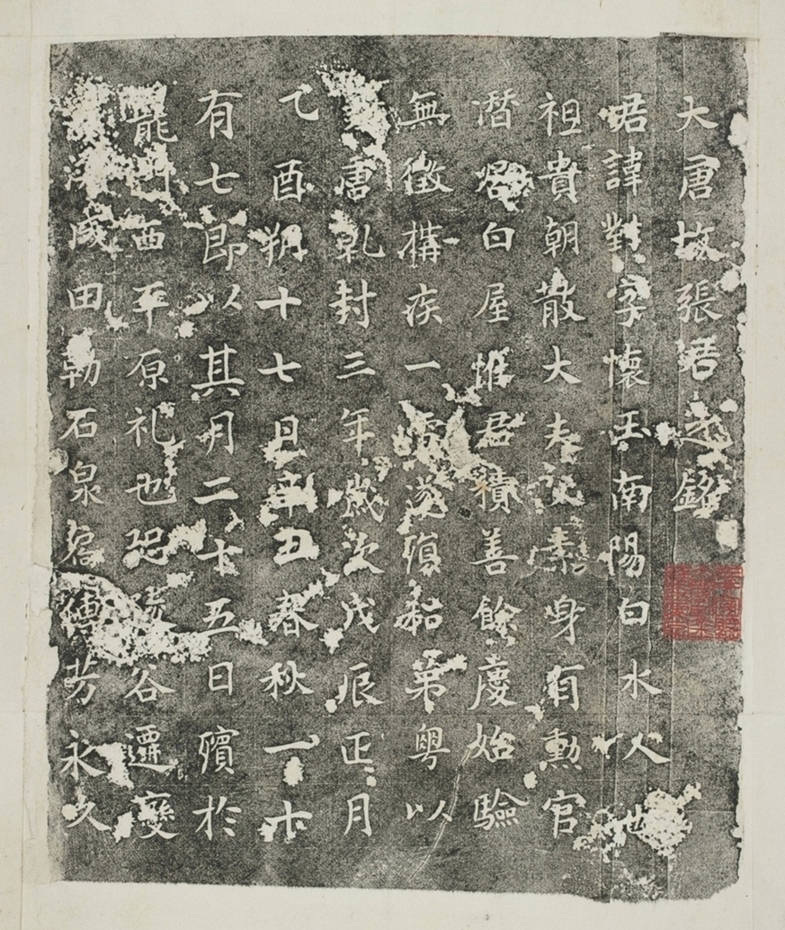 大唐故張君之銘
君諱對字懷玉南陽白水人也
祖貴朝散大夫父素身有勳官
潛居白屋惟君積善餘慶始驗
無徵構疾一宿遂殞私第粵以
唐乹封三年歲次戊辰正月
乙酉朔十七日辛丑春秋一十
有七即以其月二十五日殯於
龍門西平原礼也恐陵谷遷變
海成田勒石泉扃傳芳永久